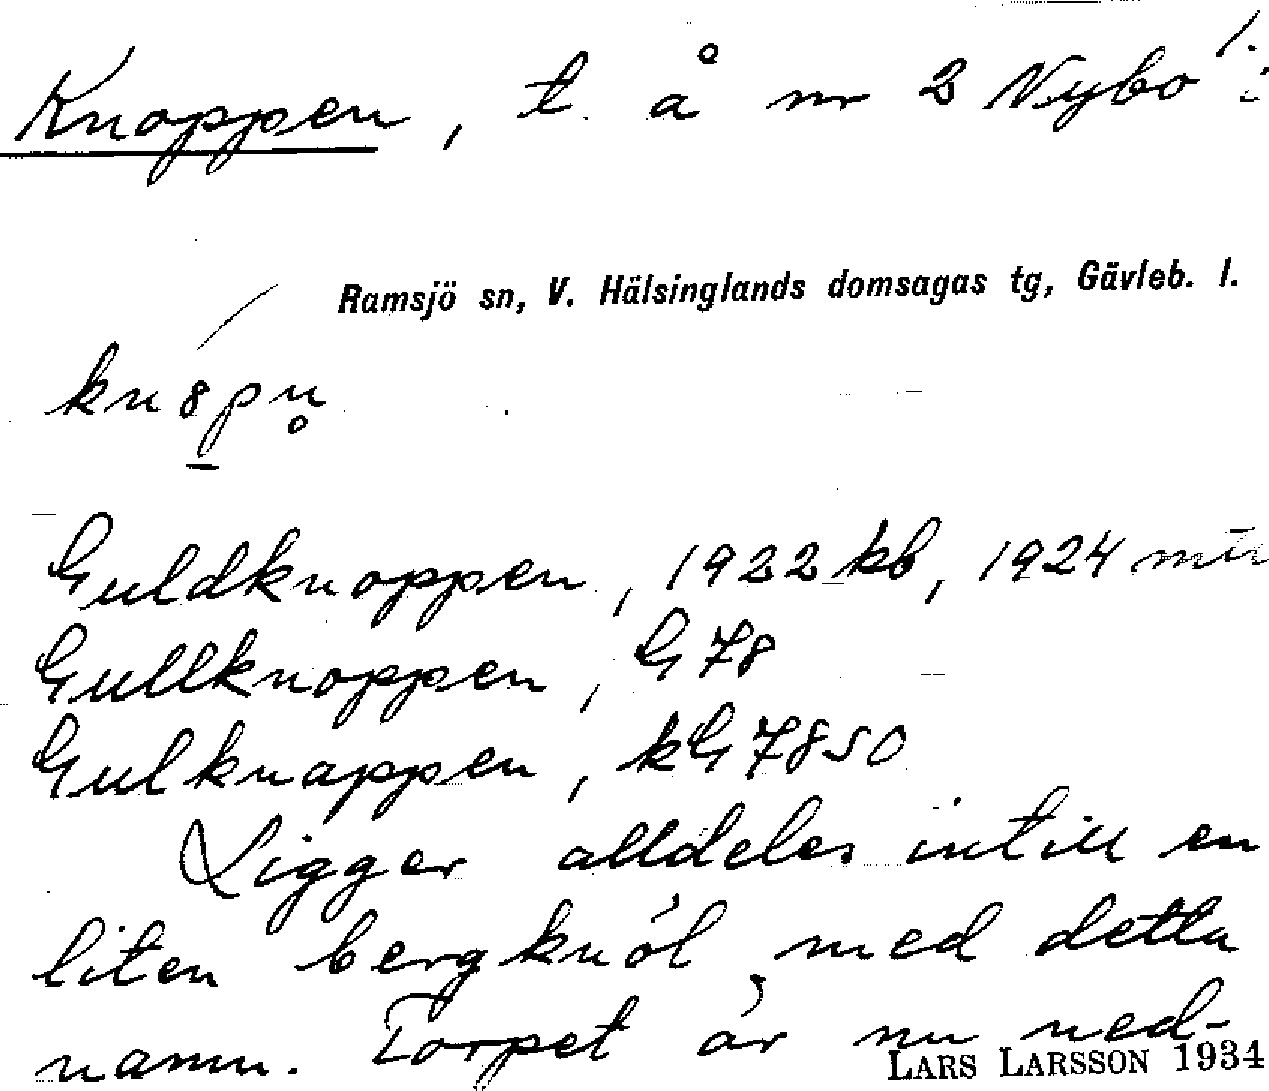 Knoppen, t. å nr 2 Nybo 1:
Ramsjö sn, V. Hälsinglands domsagas tg, Gävleb. l.
Guldknoppen, 1922 kb, 1924 mtr
Gullknoppen, G 78
Gulknappen, kG 7850
Ligger alldeles intill en
liten bergknöl med detta
namn. Torpet är nu ned-
LARS LARSSON 1934